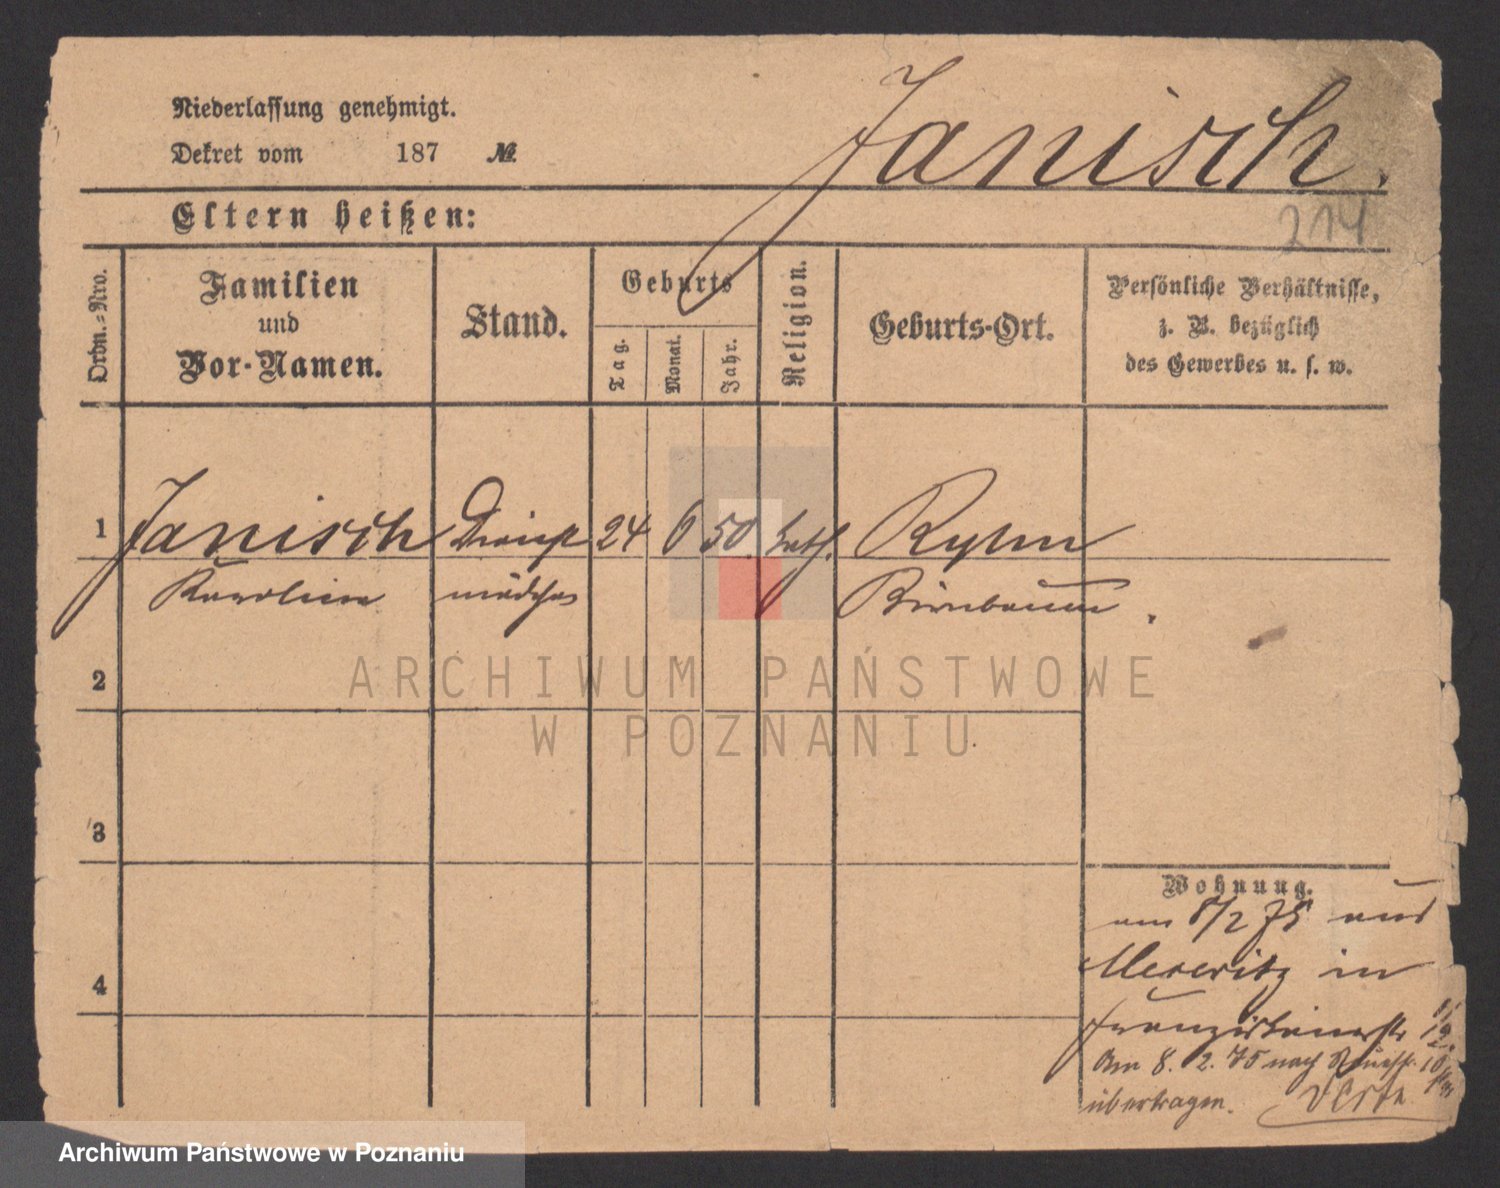 Janisch.
Niederlassung genehmigt.
Dekret vom 187 №
214
Eltern heißen:
Ordn.-Nro.
Familien
und
Vor-Namen.
Stand.
Geburts
Tag.
Monat.
Jahr.
Religion.
Geburts-Ort.
Persönliche Verhältnisse,
z. B. bezüglich
des Gewerbes u. s. w.
1 Janisch Dienst 24 6 50. kath. Ryhn
Karoline mädchen Birnbaum.
2
3
4
Wohnung.
am 8/2 75 aus
Meseritz in
Franziskanerstr
Am 8. 2. 75 nach
übertragen.
ARCHIWUM PAŃSTWOWE
W POZNANIU
Archiwum Państwowe w Poznaniu